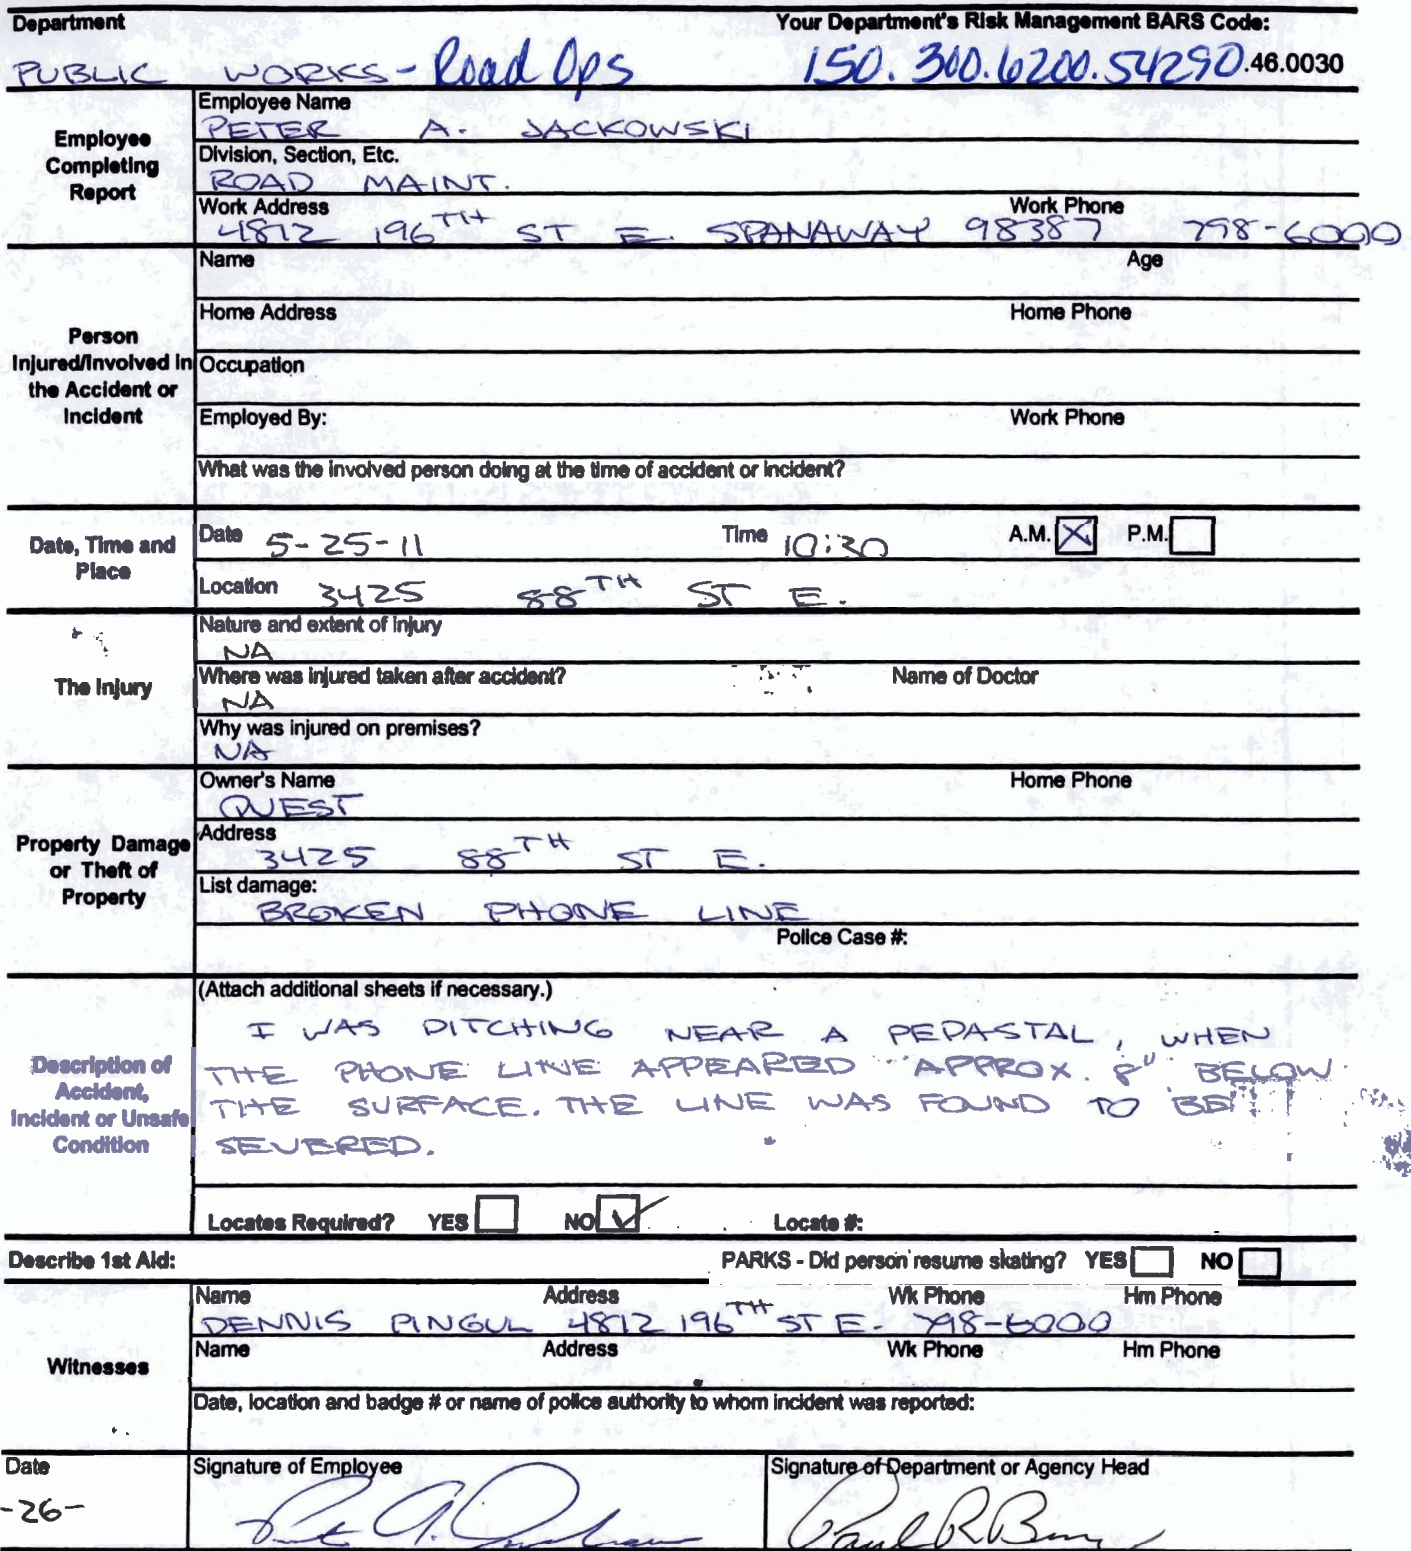 Department Your Department's Risk Management BARS Code:
PUBLIC WORKS - Road Ops 150.300.6200.54290.46.0030
Employee Completing Report
Employee Name
PETER A. JACKOWSKI
Division, Section, Etc.
ROAD MAINT.
Work Address Work Phone
4812 196TH ST E. SPANAWAY 98387 798-6000
Person Injured/Involved in the Accident or Incident
Name Age
Home Address Home Phone
Occupation
Employed By: Work Phone
What was the involved person doing at the time of accident or incident?
Date, Time and Place
Date 5-25-11 Time 10:30 A.M. X P.M.
Location 3425 88TH ST E.
The Injury
Nature and extent of injury
NA
Where was injured taken after accident? Name of Doctor
NA
Why was injured on premises?
NA
Property Damage or Theft of Property
Owner's Name Home Phone
QUEST
Address
3425 88TH ST E.
List damage:
BROKEN PHONE LINE
Police Case #:
Description of Accident, Incident or Unsafe Condition
(Attach additional sheets if necessary.)
I WAS DITCHING NEAR A PEDASTAL, WHEN
THE PHONE LINE APPEARED APPROX. 8" BELOW
THE SURFACE. THE LINE WAS FOUND TO BE
SEVERED.
Locates Required? YES NO ✓ Locate #:
Describe 1st Aid: PARKS - Did person resume skating? YES NO
Witnesses
Name Address Wk Phone Hm Phone
DENNIS PINGUL 4812 196TH ST E. 798-6000
Name Address Wk Phone Hm Phone
Date, location and badge # or name of police authority to whom incident was reported:
Date Signature of Employee Signature of Department or Agency Head
-26-